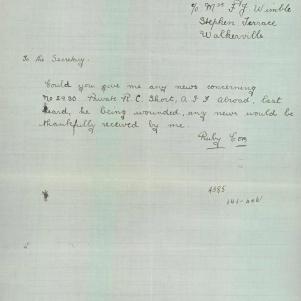 c/o Mrs F J Wimble
Stephen Terrace
Walkerville
To the Secretary.
Could you give me any news concerning
No 2930. Private R. C. Short, A I F Abroad, last
heard, he being wounded, any news would be
thankfully received by me.
Ruby Cox